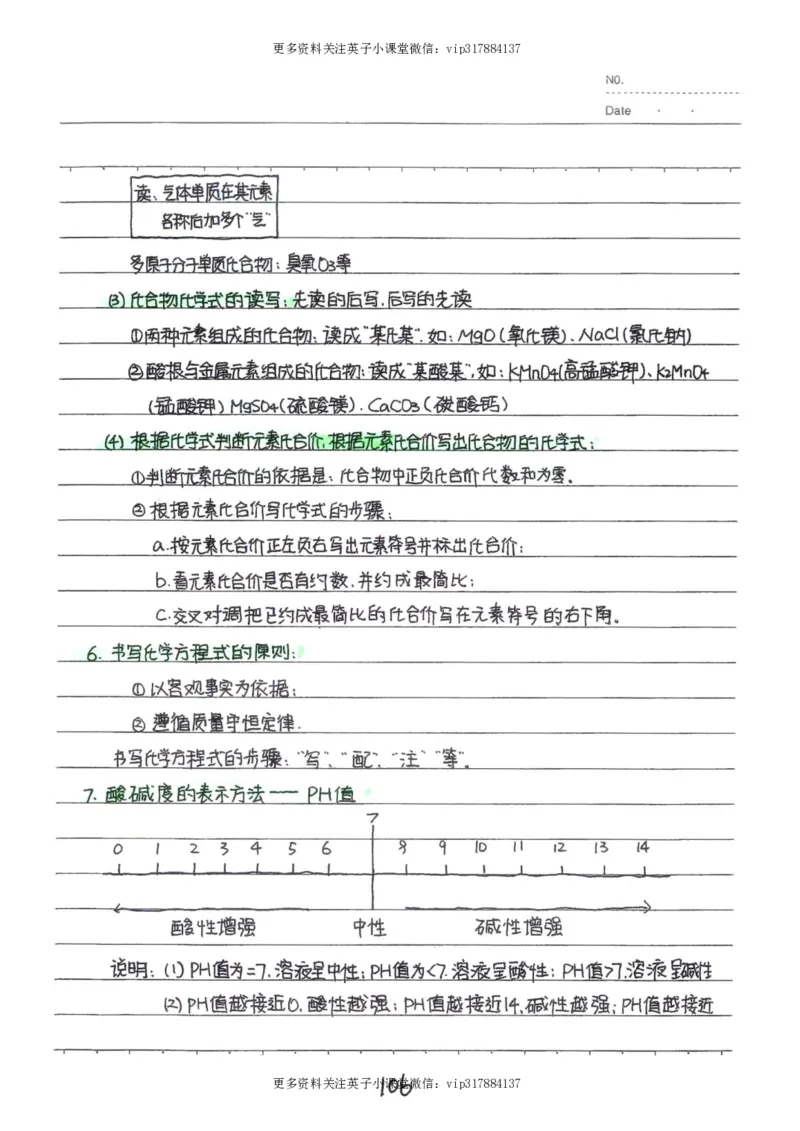 更多资料关注英子小课堂微信：vip317884137
NO.
Date · ·
读：气体单质在其元素
名称后加多个“气”
多原子分子单质化合物：臭氧O3等
(3)化合物化学式的读写：先读的后写.后写的先读
①两种元素组成的化合物：读成“某化某”.如：MgO（氧化镁）、NaCl（氯化钠）
②酸根与金属元素组成的化合物：读成“某酸某”，如：KMnO4（高锰酸钾）、K2MnO4
（锰酸钾）MgSO4（硫酸镁）.CaCO3（碳酸钙）
(4)根据化学式判断元素化合价，根据元素化合价写出化合物的化学式：
①判断元素化合价的依据是：化合物中正负化合价代数和为零。
②根据元素化合价写化学式的步骤：
a.按元素化合价正左负右写出元素符号并标出化合价；
b.看元素化合价是否有约数.并约成最简比；
C.交叉对调把已约成最简比的化合价写在元素符号的右下角。
6.书写化学方程式的原则：
①以客观事实为依据；
②遵循质量守恒定律.
书写化学方程式的步骤：“写”、“配”、“注”“等”。
7.酸碱度的表示方法——PH值
7
0 1 2 3 4 5 6 8 9 10 11 12 13 14
酸性增强 中性 碱性增强
说明：(1)PH值为=7.溶液呈中性；PH值为<7.溶液呈酸性；PH值>7.溶液呈碱性
(2)PH值越接近0.酸性越强；PH值越接近14.碱性越强；PH值越接近
更多资料关注英子小课堂微信：vip317884137
106